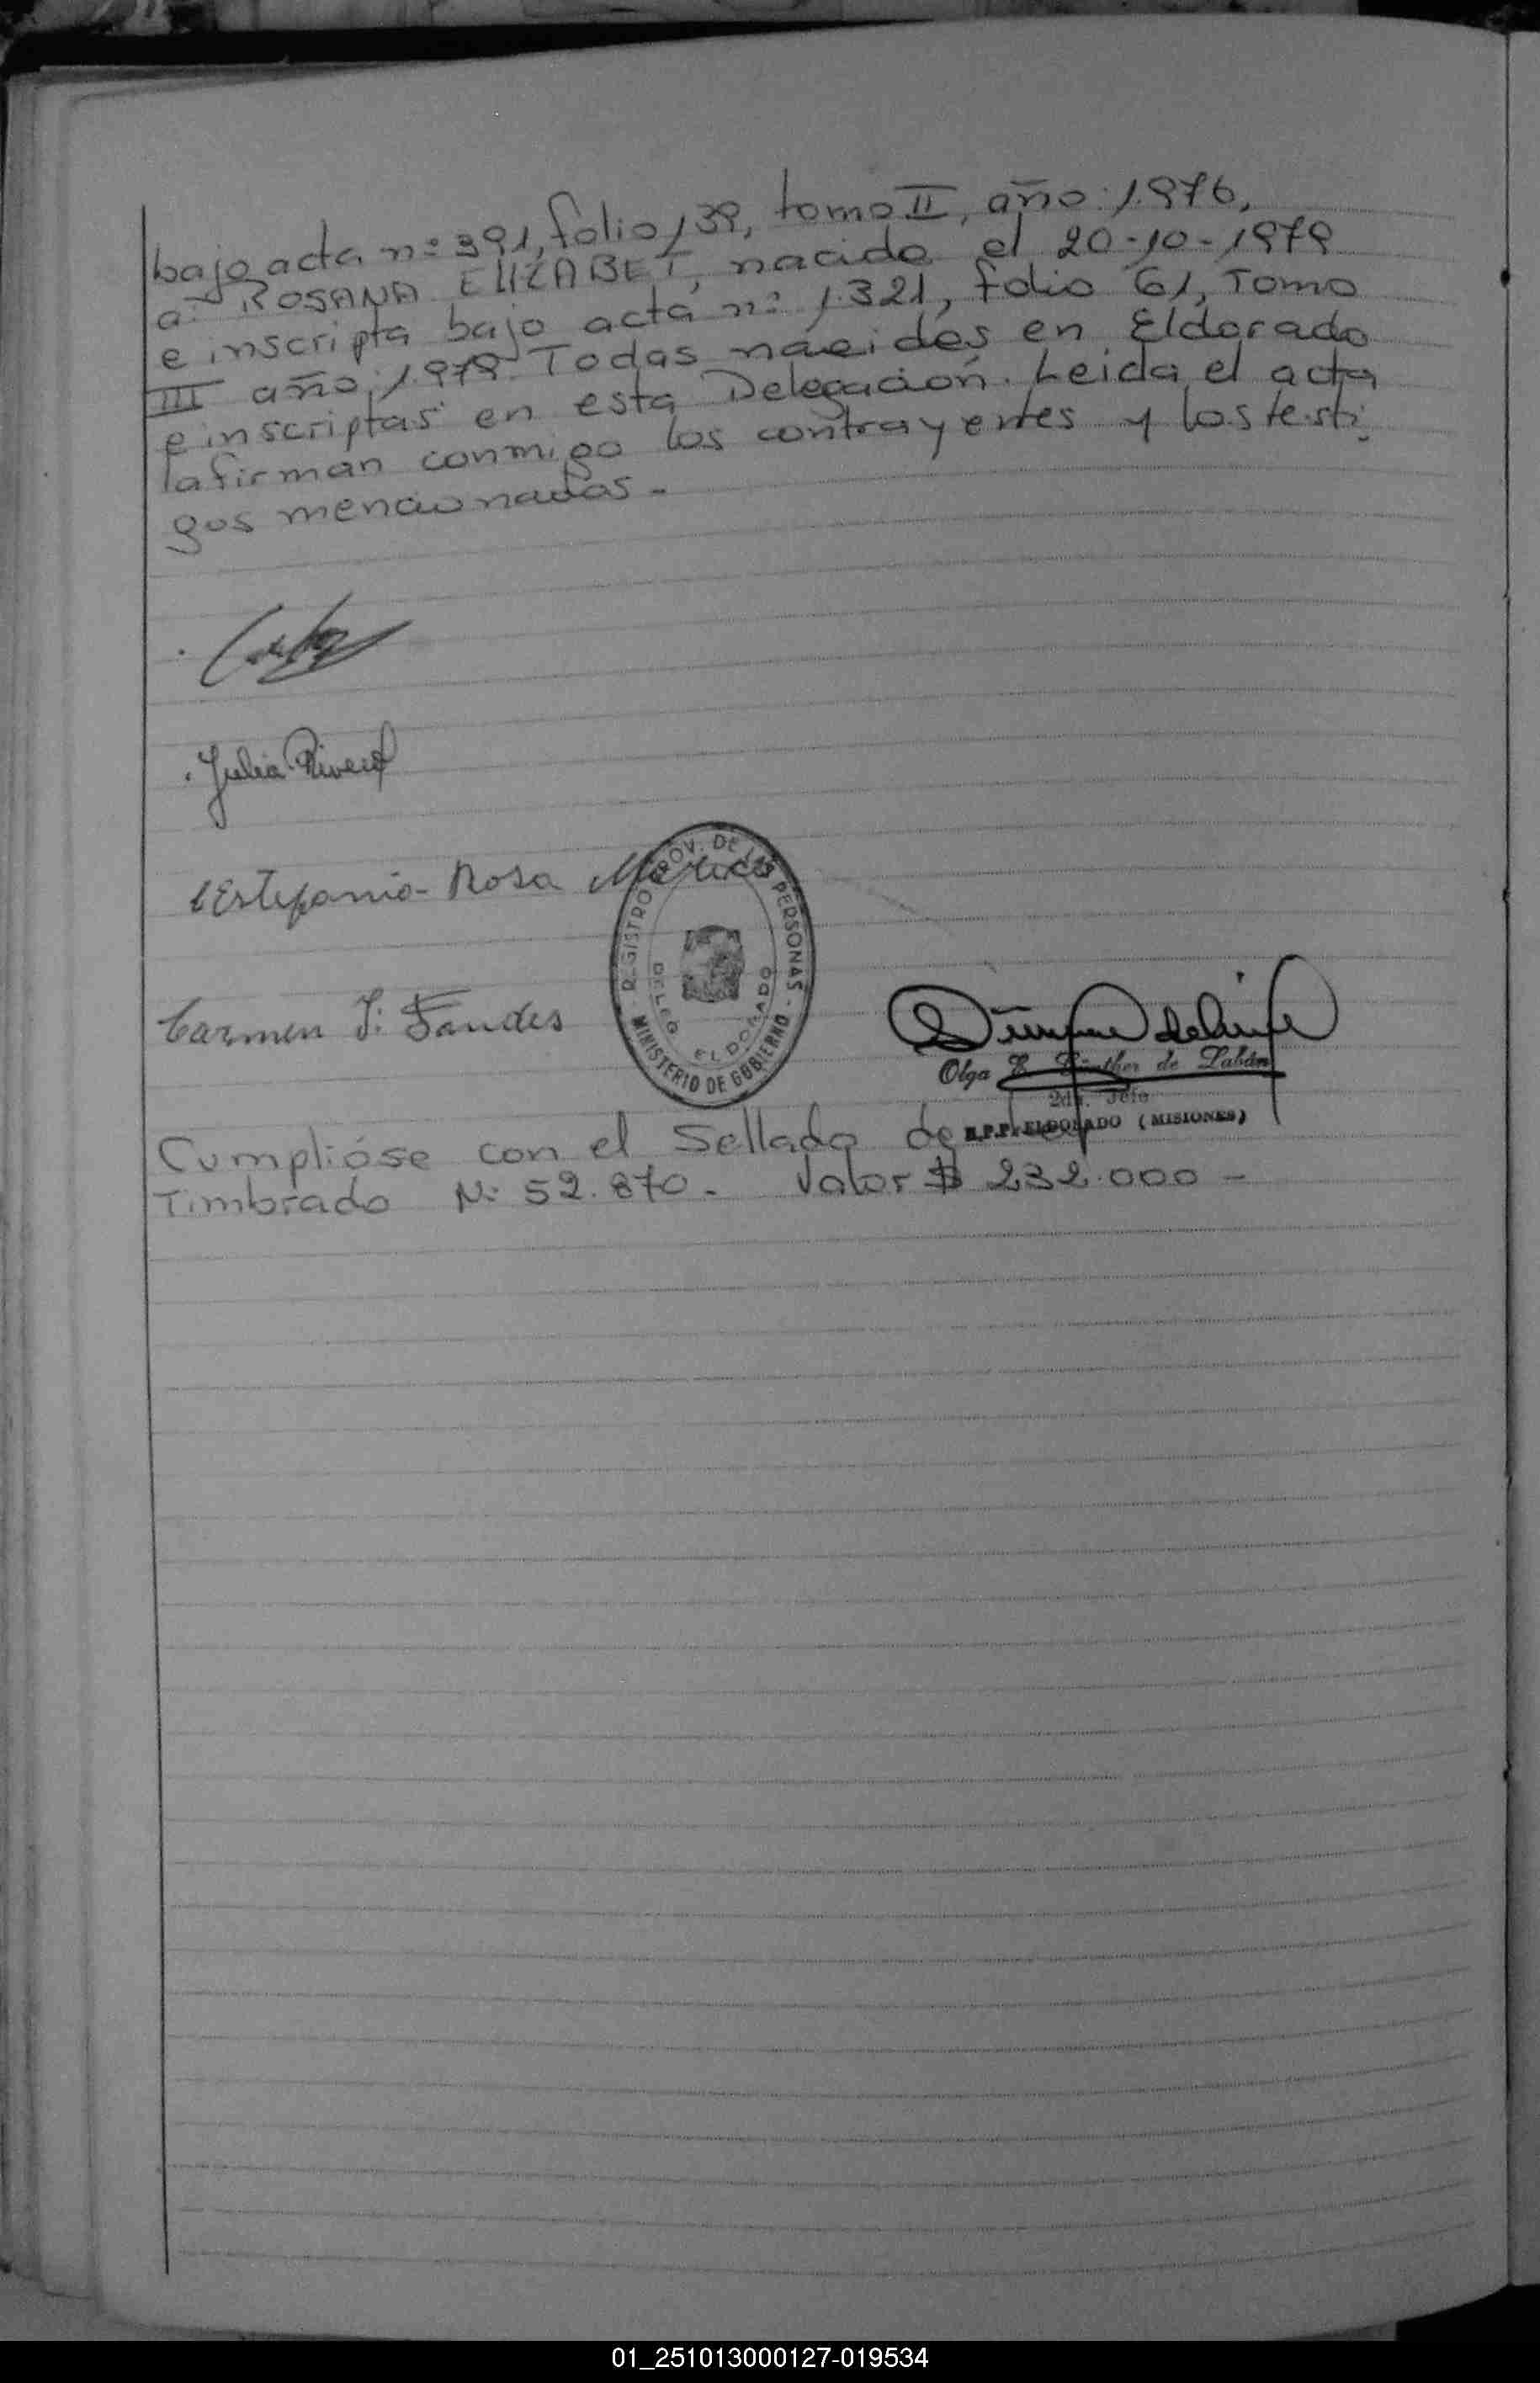 bajo acta n: 391, folio 139, tomo II, año: 1.976,
a: ROSANA ELIZABET, nacida el 20-10-1979
e inscripta bajo acta n: 1.321, folio 61, Tomo
III año: 1.979. Todas nacidas en Eldorado
e inscriptas en esta Delegación. Leida el acta
la firman conmigo los contrayentes y los testi
gos mencionados.-
Julia Rivero
Estefania Rosa
REGISTRO PROV. DE LAS PERSONAS - MINISTERIO DE GOBIERNO -
DELEG. ELDORADO
Carmen J. Fandes
Olga Günther de Labán
2da. Jefe
R.P.P. ELDORADO (MISIONES)
Cumplióse con el Sellado de
Timbrado N: 52.870. Valor $ 232.000 -
01_251013000127-019534